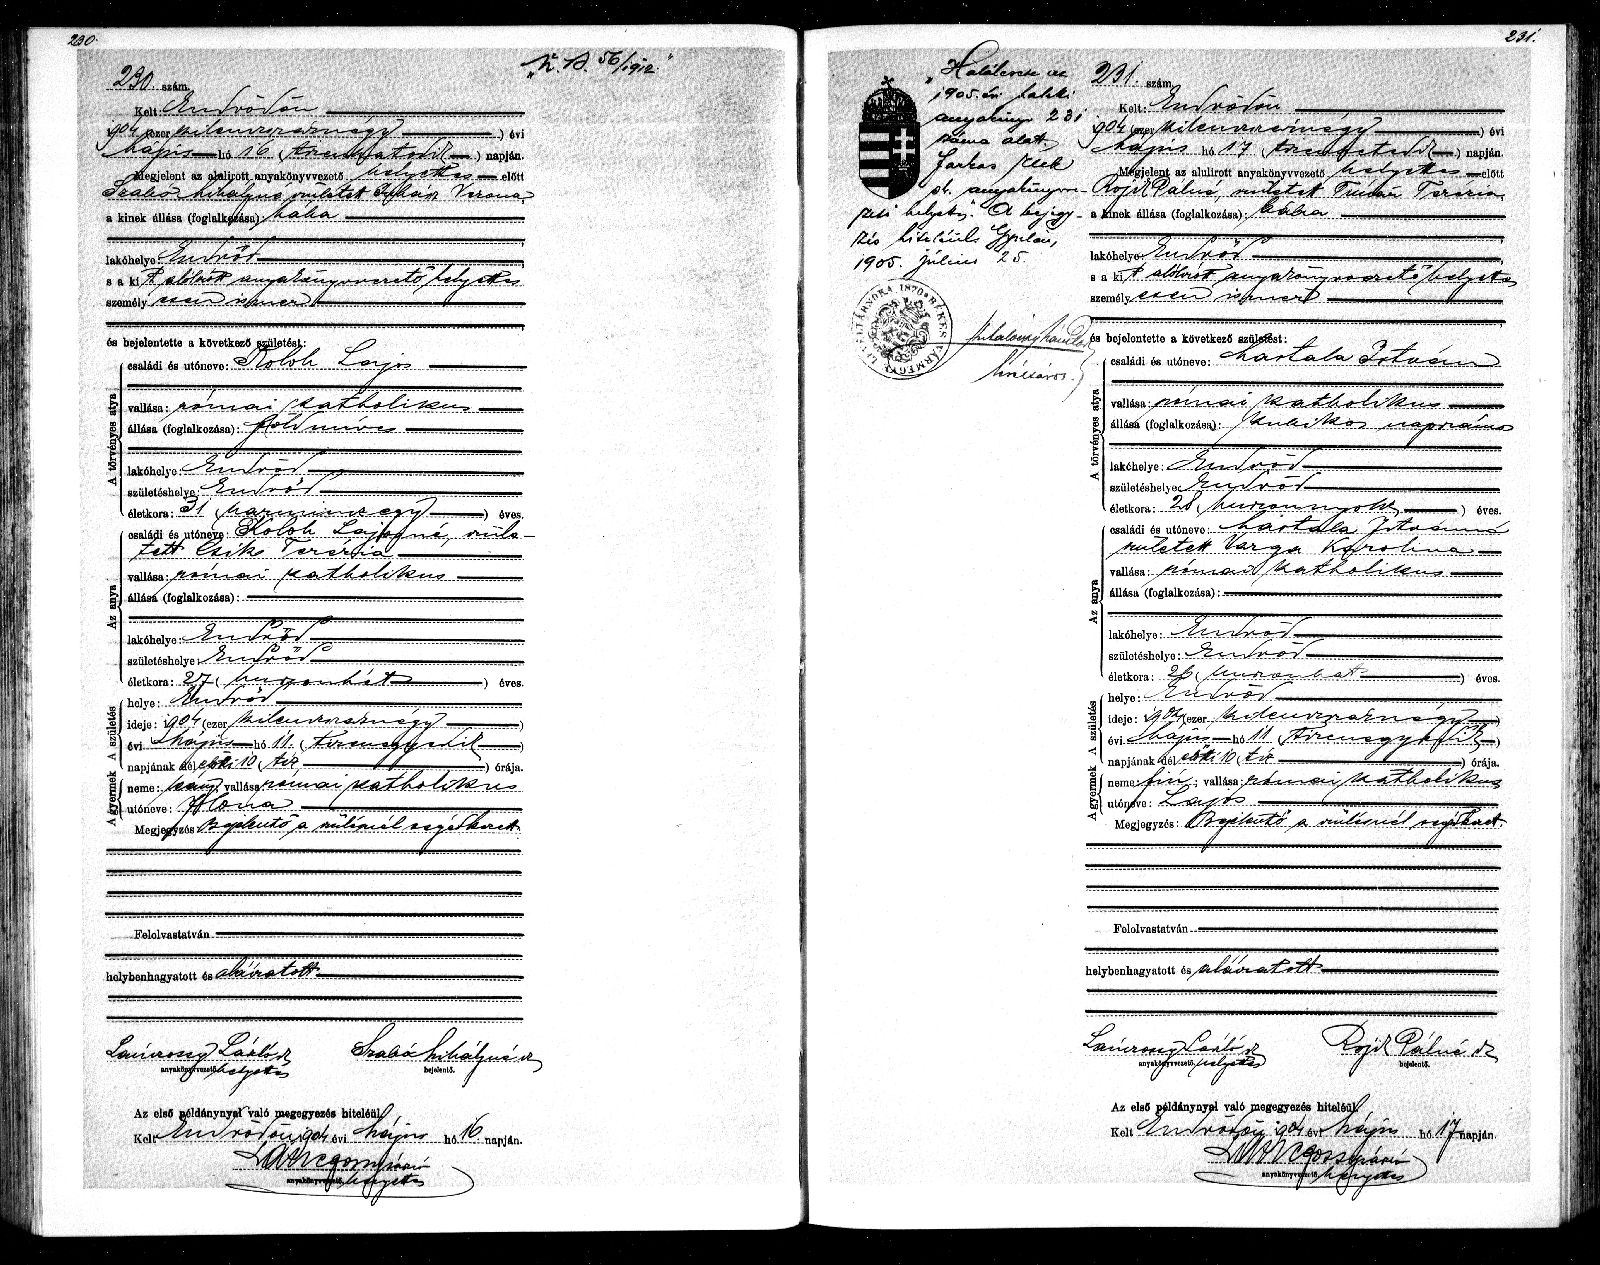 230.
"K. B. 56/1912."
230. szám.
Kelt Endrődön
1904 (ezer kilenczszáznégy) évi
Május hó 16 (tizenhatodik) napján.
Megjelent az alulirott anyakönyvvezető helyettes előtt
Szabó Mihályné született Verona
a kinek állása (foglalkozása): bába
lakóhelye: Endrőd
s a kit alólirott anyakönyvvezető helyettes
személyesen ismer
és bejelentette a következő születést:
A törvényes atya
családi és utóneve: Koloh Lajos
vallása: római katholikus
állása (foglalkozása): földmíves
lakóhelye: Endrőd
születéshelye: Endrőd
életkora: 31 (harminczegy) éves.
Az anya
családi és utóneve: Koloh Lajosné, szüle-
tett Csike Terézia
vallása: római katholikus
állása (foglalkozása):
lakóhelye: Endrőd
születéshelye: Endrőd
életkora: 27 (huszonhét) éves.
A születés
helye: Endrőd
ideje: 1904 (ezer kilenczszáznégy)
évi Május hó 11. (tizenegyedik)
napjának dél előtti 10 (tíz) órája.
A gyermek
neme: leány, vallása: római katholikus
utóneve: Ilona
Megjegyzés: Bejelentő a szülésnél segédkezett
Felolvastatván
helybenhagyatott és aláiratott
László sk Szabó Mihályné sk
anyakönyvvezető. helyettes bejelentő.
Az első példánynyal való megegyezés hiteléül.
Kelt Endrődön 1904 évi Május hó 16 napján.
anyakönyvvezető. helyettes
231.
"Halálesete az
1905. évi halálozási
anyakönyv 231
száma alatt.
Farkas Elek
sk. anyakönyvve-
zető helyettes." A bejegy-
zés hiteléül. Gyulán,
1905. július 25.
FŐLEVÉLTÁRNOKA 1870 * BÉKÉS VÁRMEGYE
231. szám.
Kelt: Endrődön
1904 (ezer kilenczszáznégy) évi
Május hó 17 (tizenhetedik) napján.
Megjelent az alulirott anyakönyvvezető helyettes előtt
Rojik Pálné, született Timár Terézia
a kinek állása (foglalkozása): bába
lakóhelye: Endrőd
s a kit alólirott anyakönyvvezető helyettes
személyesen ismer
és bejelentette a következő születést:
A törvényes atya
családi és utóneve: Martala István
vallása: római katholikus
állása (foglalkozása): kubikos napszámos
lakóhelye: Endrőd
születéshelye: Endrőd
életkora: 28 (huszonnyolcz) éves.
Az anya
családi és utóneve: Martala Istvánné
született Varga Karolina
vallása: római katholikus
állása (foglalkozása):
lakóhelye: Endrőd
születéshelye: Endrőd
életkora: 26 (huszonhat) éves.
A születés
helye: Endrőd
ideje: 1904 (ezer kilenczszáznégy)
évi Május hó 11 (tizenegyedik)
napjának dél előtti 10 (tíz) órája.
A gyermek
neme: fiú; vallása: római katholikus
utóneve: Lajos
Megjegyzés: Bejelentő a szülésnél segédkezett.
Felolvastatván
helybenhagyatott és aláiratott
László sk Rojik Pálné sk
anyakönyvvezető. helyettes bejelentő.
Az első példánynyal való megegyezés hiteléül.
Kelt Endrődön 1904 évi Május hó 17 napján.
anyakönyvvezető. helyettes